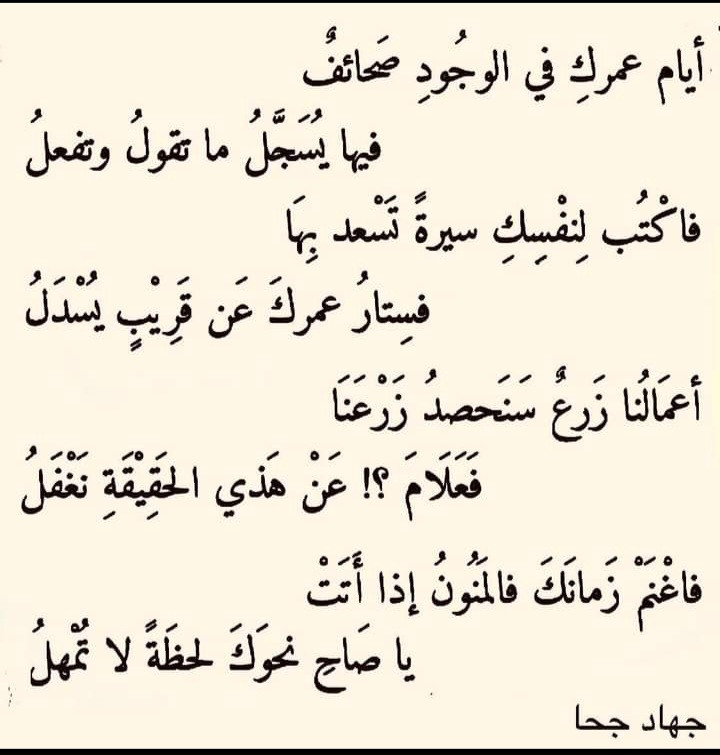 أيام عمركِ في الوجُودِ صَحائفٌ
فيها يُسَجَّلُ ما تقولُ وتفعلُ
فاكْتُب لِنفْسِكِ سيرةً تَسْعد بِهَا
فسِتارُ عمركَ عَن قَرِيْبٍ يُسْدَلُ
أعمَالُنا زَرعٌ سَنَحصدُ زَرْعَنَا
فَعَلَامَ ؟! عَنْ هَذي الحَقِيْقَةِ نَغْفَلُ
فاغْنَمْ زَمانَكَ فالمَنُونُ إذا أَتَتْ
يا صَاحِ نحوَكَ لحظَةً لا تُمْهلُ
جهاد جحا